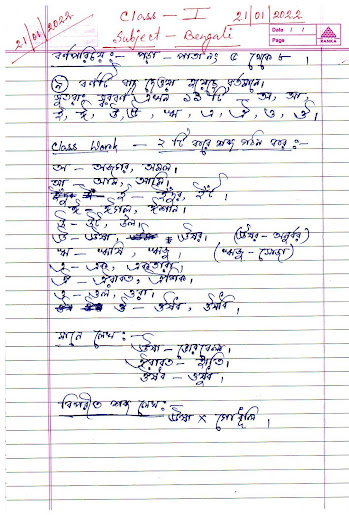 21/01/2022
Class - I
21/01/2022
Subject - Bengali
Date / /
Page
RANKA
বর্ণপরিচয় :- পড়া - পাতা নং ৫ থেকে ৮।
বর্ণটি বাদ দেওয়া হয়েছে বর্তমানে।
সুতরাং স্বরবর্ণ এখন ১১টি - অ, আ,
ই, ঈ, উ, ঊ, ঋ, এ, ঐ, ও, ঔ।
Class Work - ২ টি করে শব্দ গঠন কর :-
অ - অজগর, অমল।
আ - আম, আমি।
ই - ইঁদুর, ইঁট।
ঈ - ঈগল, ঈশান।
উ - উট, উল।
ঊ - ঊষা, ঊষর। (ঊষর - অনুর্বর)
ঋ - ঋষি, ঋজু। (ঋজু - সোজা)
এ - এক, একতারা।
ঐ - ঐরাবত, ঐশিক।
ও - ওল, ওরা।
ঔ - ঔষধ, ঔষধি।
মানে লেখ :-
ঊষা - ভোরবেলা
ঐরাবত - হাতি।
ঔষধ - ওষুধ।
বিপরীত শব্দ লেখ :-
ঊষা × গোধূলি।